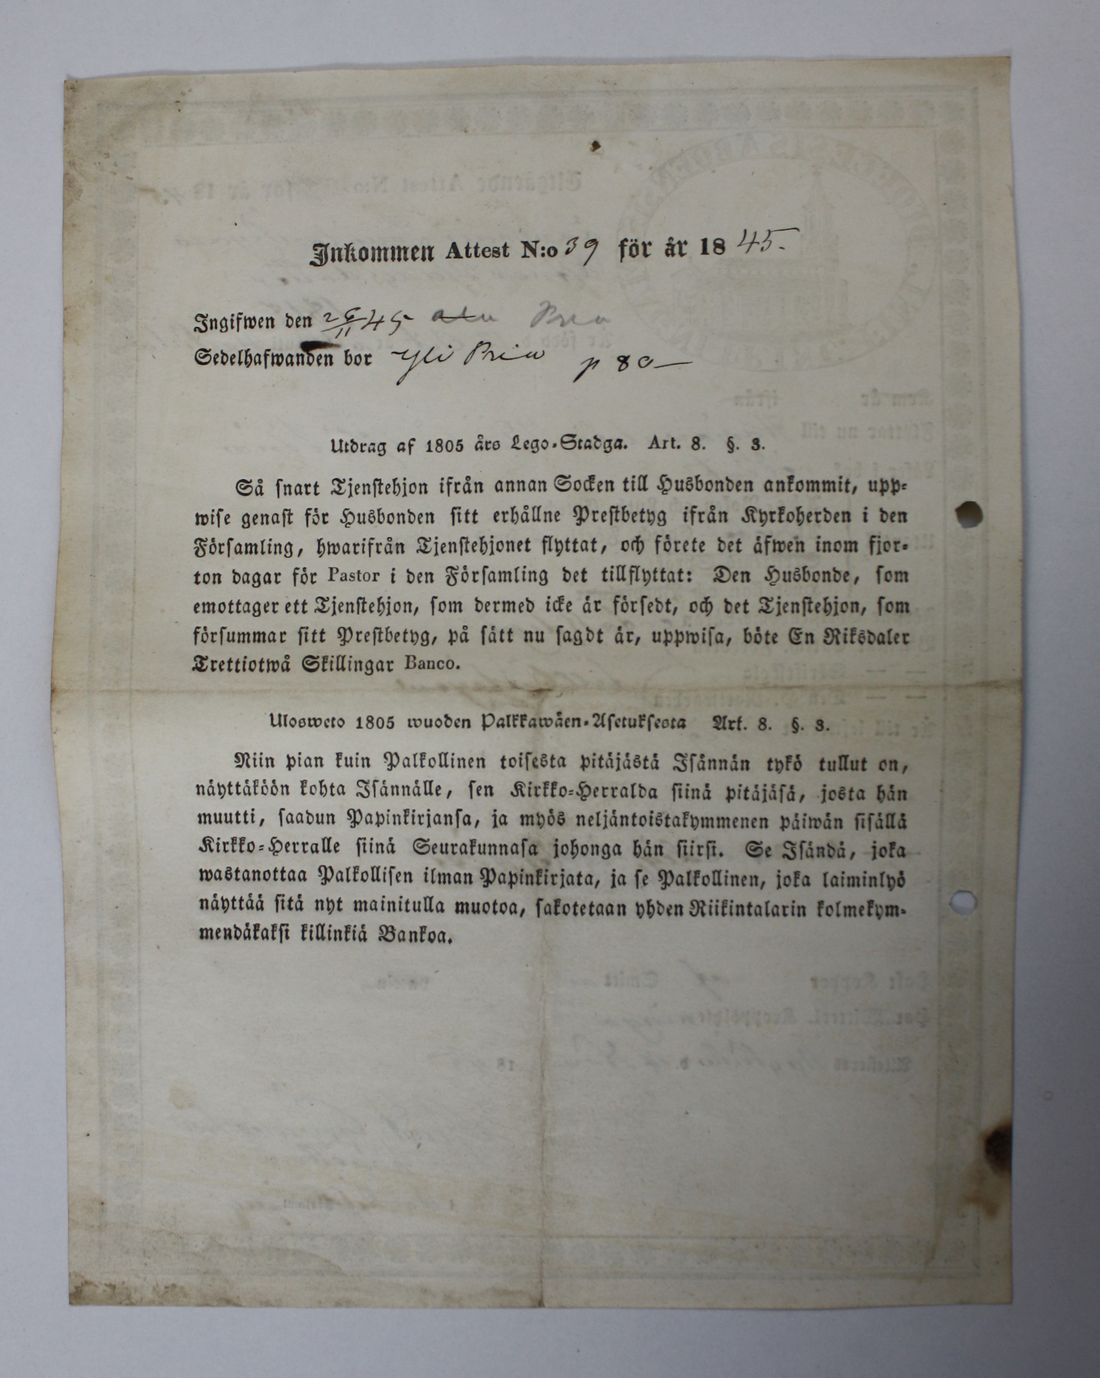 Inkommen Attest N:o 39 för år 1845.
Ingifwen den 26/11 45
Sedelhafwanden bor Yli Pria p 80
Utdrag af 1805 års Lego-Stadga. Art. 8. §. 3.
Så snart Tjenstehjon ifrån annan Socken till Husbonden ankommit, upp-
wise genast för Husbonden sitt erhållne Prestbetyg ifrån Kyrkoherden i den
Församling, hwarifrån Tjenstehjonet flyttat, och förete det äfwen inom fjor-
ton dagar för Pastor i den Församling det tillflyttat: Den Husbonde, som
emottager ett Tjenstehjon, som dermed icke är försedt, och det Tjenstehjon, som
försummar sitt Prestbetyg, på sätt nu sagdt är, uppwisa, böte En Riksdaler
Trettiotwå Skillingar Banco.
Ulosweto 1805 wuoden Palkkawäen-Asetuksesta Art. 8. §. 3.
Niin pian kuin Palkollinen toisesta pitäjästä Isännän tykö tullut on,
näyttäköön kohta Isännälle, sen Kirkko-Herralda siinä pitäjäsä, josta hän
muutti, saadun Papinkirjansa, ja myös neljäntoistakymmenen päiwän sisällä
Kirkko-Herralle siinä Seurakunnasa johonga hän siirsi. Se Isändä, joka
wastanottaa Palkollisen ilman Papinkirjata, ja se Palkollinen, joka laiminlyö
näyttää sitä nyt mainitulla muotoa, sakotetaan yhden Riikintalarin kolmekym-
mendäkaksi killinkiä Bankoa.